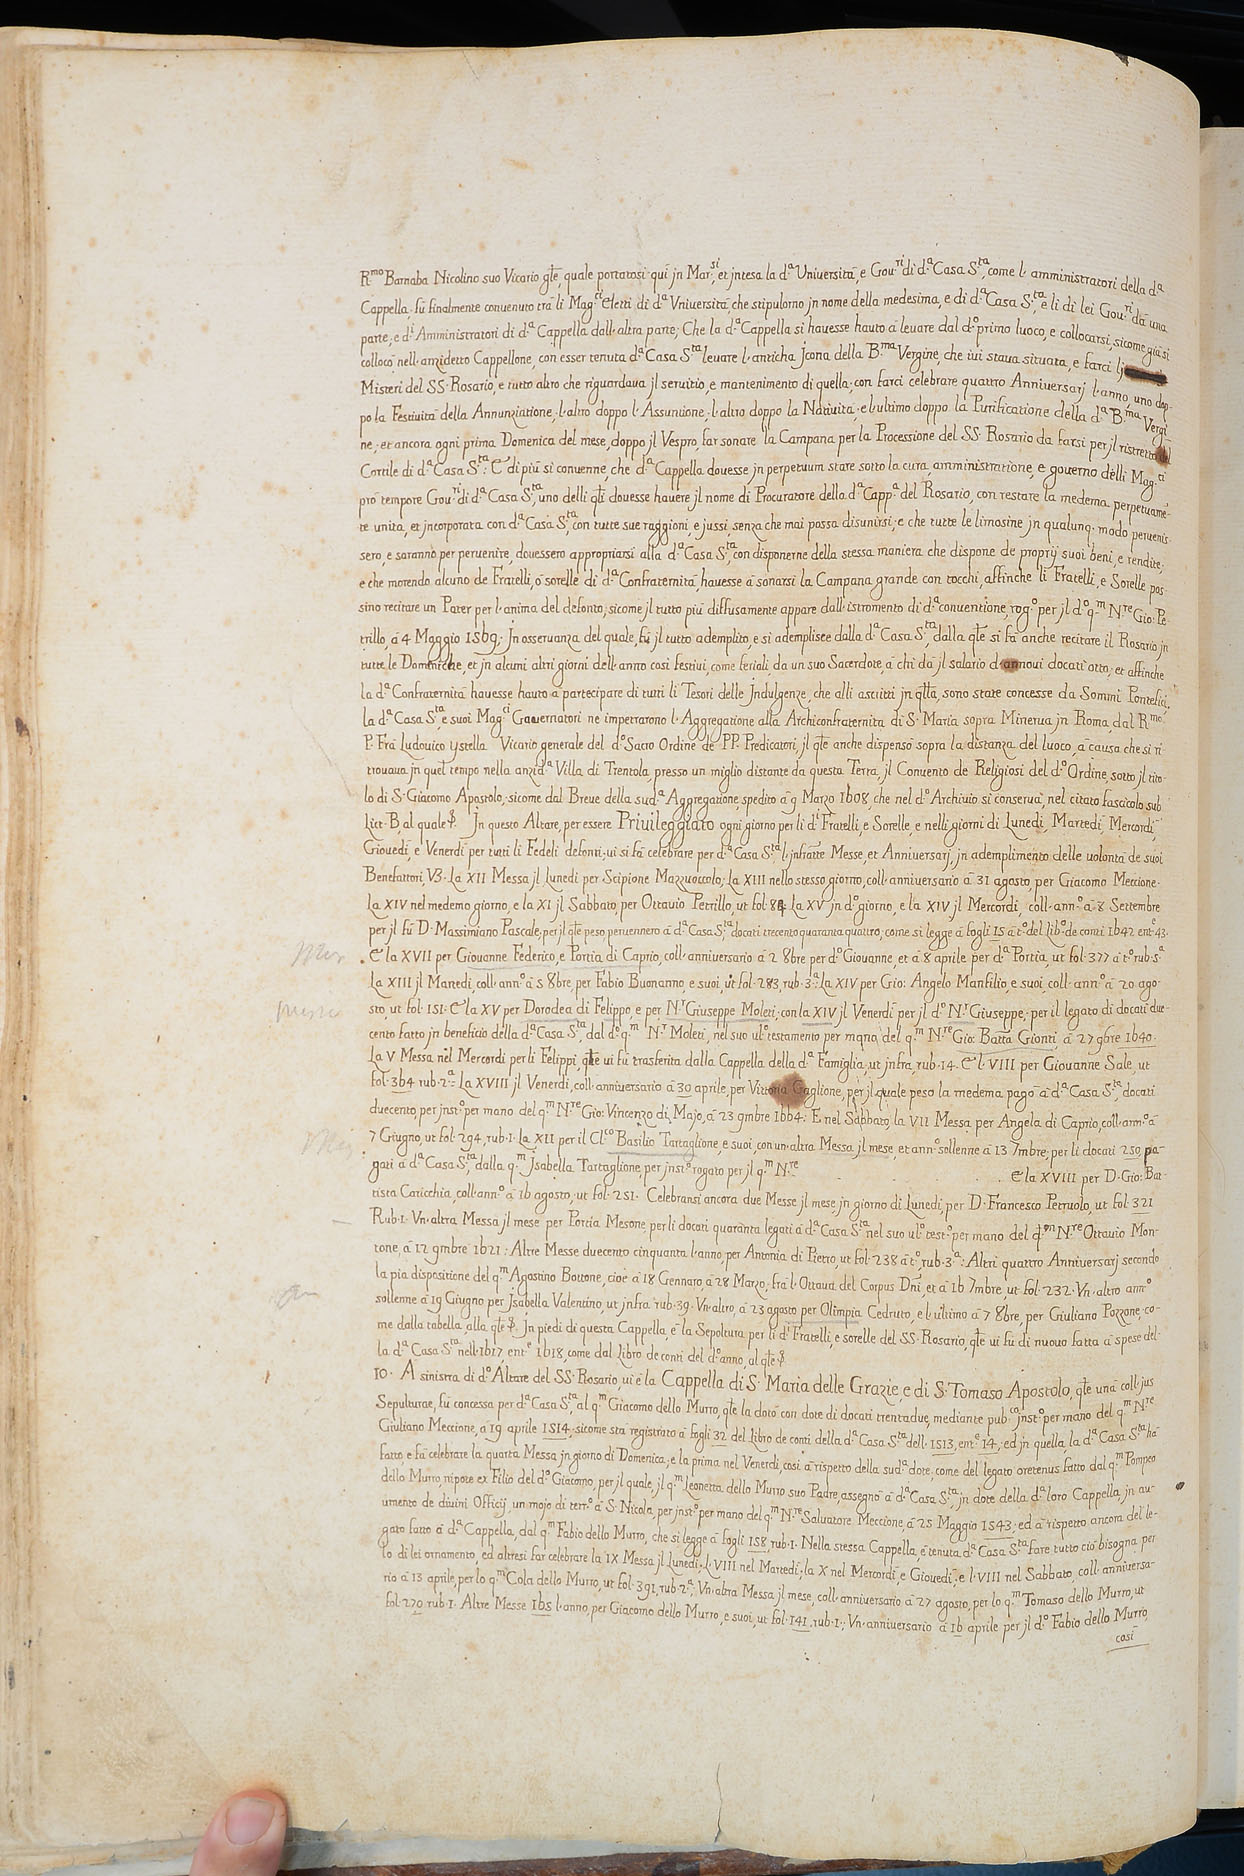 R.mo Barnaba Nicolino suo Vicario gñle, quale portatosi quì jn Mar.si, et jntesa la d.a Università, e Gou.ri di d.a Casa S.ta, come l'amministratori della d.a
Cappella, fù finalmente conuenuto trà li Mag.ci Eletti di d.a Vniversità, che stipulorno jn nome della medesima, e di d.a Casa S.ta, e li di lei Gou.ri dà una
parte, e d.i Amministratori di d.a Cappella dall'altra parte; Che la d.a Cappella si hauesse hauto à leuare dal d.o primo luoco, e collocarsi, sicome già si
collocò nell'anzidetto Cappellone, con esser tenuta d.a Casa S.ta leuare l'anticha jcona della B.ma Vergine, che iui staua situata, e farci lj
Misteri del SS. Rosario, e tutto altro che riguardaua jl seruitio, e mantenimento di quella; con farci celebrare quattro Anniversarj l'anno, uno dop-
po la Festiuità della Annunziatione, l'altro doppo l'Assuntione, l'altro doppo la Natiuità, e l'ultimo doppo la Purificatione della d.a B.ma Vergi-
ne; et ancora ogni prima Domenica del mese, doppo jl Vespro, far sonare la Campana per la Processione del SS. Rosario da farsi per jl ristretto
Cortile di d.a Casa S.ta: E di più si conuenne, che d.a Cappella douesse jn perpetuum stare sotto la cura, amministratione, e governo delli Mag.ci
prò tempore Gou.ri di d.a Casa S.ta, uno delli q̃li douesse hauere jl nome di Procuratore della d.a Capp.a del Rosario, con restare la medema perpetuamẽ-
te unita, et jncorporata con d.a Casa S.ta, con tutte sue raggioni, e jussi, senza che mai possa disunirsi; e che tutte le limosine jn qualunq. modo peruenis-
sero, e saranno per peruenire, douessero appropriarsi alla d.a Casa S.ta, con disponerne della stessa maniera che dispone de proprij suoi beni, e rendite;
e che morendo alcuno de Fratelli, ò sorelle di d.a Confraternità, hauesse à sonarsi la Campana grande con tocchi, affinche li Fratelli, e Sorelle pos-
sino recitare un Pater per l'anima del defonto; sicome jl tutto più diffusamente appare dall'istromento di d.a conuentione, rog.o per jl d.o q.m N.re Gio: Pe-
trillo, à 4 Maggio 1569: Jn osseruanza del quale, fù jl tutto adempito, e si ademplisce dalla d.a Casa S.ta, dalla q̃le si fà anche recitare il Rosario jn
tutte le Domeniche, et jn alcuni altri giorni dell'anno così festiui, come feriali, da un suo Sacerdote, à chi dà jl salario d'annoui docati otto; et affinche
la d.a Confraternità hauesse hauto à partecipare di tutti li Tesori delle Jndulgenze, che alli ascritti jn q̃lla, sono state concesse da Sommi Pontefici,
la d.a Casa S.ta, e suoi Mag.ci Gouernatori ne impetrarono l'Aggregatione alla Archiconfraternità di S. Maria sopra Minerua jn Roma, dal R.mo
P. Frà Ludouico ystella Vicario generale del d.o Sacro Ordine de PP. Predicatori, jl q̃le anche dispensò sopra la distanza del luoco, à causa che si ri-
trouaua jn quel tempo nella anzid.a Villa di Trentola, presso un miglio distante da questa Terra, jl Conuento de Religiosi del d.o Ordine, sotto jl tito-
lo di S. Giacomo Apostolo, sicome dal Breue della sud.a Aggregatione, spedito à 9 Marzo 1608, che nel d.o Archiuio si conserua, nel citato fascicolo sub
Litt. B, al quale. Jn questo Altare, per essere Priuileggiato ogni giorno per li d.i Fratelli, e Sorelle, e nelli giorni di Lunedì, Martedì, Mercordì,
Giouedì, e Venerdì per tutti li Fedeli defonti, ui si fà celebrare per d.a Casa S.ta l'jnfratte Messe, et Anniversarj, jn adempimento delle uolontà de suoi
Benefattori, V3. La XII Messa jl Lunedì per Scipione Mazzuoccolo, La XIII nello stesso giorno, coll'anniversario à 31 agosto, per Giacomo Meccione.
La XIV nel medemo giorno, e la XI jl Sabbato, per Ottauio Petrillo, ut fol. 84. La XV jn d.o giorno, e la XIV jl Mercordì, coll'ann.o à 8 Settembre
per jl fù D. Massimiano Pascale, per jl q̃le peso peruennero à d.a Casa S.ta docati trecento quaranta quattro, come si legge à fogli 15 à t.o del Lib.o de conti 1642 ent.e 43.
E la XVII per Giouanne Federico, e Portia di Caprio, coll'anniversario à 2 8bre per d.o Giouanne, et à 8 aprile per d.a Portia, ut fol. 377 à t.o rub. 5.a
La XIII jl Martedì, coll'ann.o à 5 8bre, per Fabio Buonanno, e suoi, ut fol. 283, rub. 3.a: La XIV per Gio: Angelo Manfilio, e suoi, coll'ann.o à 20 ago-
sto, ut fol. 151. E la XV per Dorodea di Felippo, e per N.r Giuseppe Moleti; con la XIV jl Venerdì per jl d.o N.r Giuseppe, per il legato di docati due-
cento fatto jn beneficio della d.a Casa S.ta, dal d.o q.m N.r Moleti, nel suo ul.o testamento per mano del q.m N.re Gio: Batta Gionti, à 27 9bre 1640.
La V Messa nel Mercordì per li Felippi, q̃le ui fù trasferita dalla Cappella della d.a Famiglia, ut jnfra, rub. 14. E l'VIII per Giouanne Sale, ut
fol. 364 rub. 2.a: La XVIII jl Venerdì, coll'anniversario à 30 aprile, per Vittoria Gaglione, per jl quale peso la medema pagò à d.a Casa S.ta, docati
duecento, per jnst.o per mano del q.m N.re Gio: Vincenzo di Majo, à 23 9mbre 1664: E nel Sabbato, la VII Messa per Angela di Caprio, coll'ann.o à
7 Giugno, ut fol. 294, rub. 1. La XII per il Cl.co Basilio Tartaglione, e suoi, con un altra Messa jl mese, et ann.o sollenne à 13 7mbre, per li docati 250 pa-
gati à d.a Casa S.ta, dalla q.m Jsabella Tartaglione, per jnst.o rogato per jl q.m N.re E la XVIII per D. Gio: Bat-
tista Caricchia, coll'ann.o à 16 agosto, ut fol. 251. Celebransi ancora due Messe jl mese jn giorno di Lunedì, per D. Francesco Petruolo, ut fol. 321
Rub. 1. Vn'altra Messa jl mese per Portia Mesone, per li docati quaranta legati à d.a Casa S.ta nel suo ul.o test.o per mano del q.m N.re Ottauio Mon-
tone, à 12 9mbre 1621: Altre Messe duecento cinquanta l'anno, per Antonia di Pietro, ut fol. 238 à t.o, rub. 3.a: Altri quattro Anniversarj secondo
la pia dispositione del q.m Agostino Bottone, cioè à 18 Gennaro, à 28 Marzo, frà l'Ottaua del Corpus Dnĩ, et à 16 7mbre, ut fol. 232. Vn'altro ann.o
sollenne à 19 Giugno per Jsabella Valentino, ut jnfra rub. 39. Vn'altro, à 23 agosto per Olimpia Cedruto, e l'ultimo à 7 8bre, per Giuliano Pozzone, co-
me dalla tabella, alla q̃le. Jn piedi di questa Cappella, è la Sepoltura per li d.i Fratelli, e sorelle del SS. Rosario, q̃le ui fù di nuouo fatta à spese del-
la d.a Casa S.ta nell'1617, ent.e 1618, come dal Libro de conti del d.o anno, al q̃le
10. A sinistra di d.o Altare del SS. Rosario, ui è la Cappella di S. Maria delle Grazie, e di S. Tomaso Apostolo, q̃le una coll'jus
Sepulturae, fù concessa per d.a Casa S.ta, al q.m Giacomo dello Murro, q̃le la dotò con dote di docati trentadue, mediante pub.co jnst.o per mano del q.m N.re
Giuliano Meccione, à 19 aprile 1514, sicome stà registrato à fogli 32 del Libro de conti della d.a Casa S.ta dell'1513, ent.e 14; ed jn quella, la d.a Casa S.ta hà
fatto, e fà celebrare la quarta Messa jn giorno di Domenica, e la prima nel Venerdì, così à rispetto della sud.a dote, come del legato oretenus fatto dal q.m Pompeo
dello Murro, nipote ex Filio del d.o Giacomo, per jl quale, jl q.m Leonetta dello Murro suo Padre, assegnò à d.a Casa S.ta, jn dote della d.a loro Cappella, jn au-
umento de diuini Officij, un mojo di terr.o à S. Nicola, per jnst.o per mano del q.m N.re Salvatore Meccione, à 25 Maggio 1543; ed à rispetto ancora del le-
gato fatto à d.a Cappella, dal q.m Fabio dello Murro, che si legge à fogli 158, rub. 1. Nella stessa Cappella, è tenuta d.a Casa S.ta fare tutto ciò bisogna per
lo di lei ornamento, ed altresì far celebrare la IX Messa jl Lunedì, l'VIII nel Martedì, la X nel Mercordì, e Giouedì, e l'VIII nel Sabbato, coll'anniversa-
rio à 13 aprile, per lo q.m Cola dello Murro, ut fol. 391, rub. 2.a: Vn'altra Messa jl mese, coll'anniversario à 27 agosto, per lo q.m Tomaso dello Murro, ut
fol. 270 rub. 1. Altre Messe 165 l'anno, per Giacomo dello Murro, e suoi, ut fol. 141, rub. 1; Vn'anniversario à 16 aprile per jl d.o Fabio dello Murro,
così